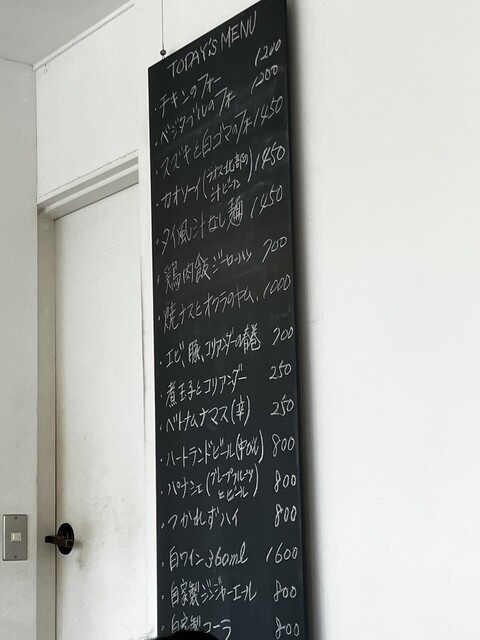 TODAY'S MENU
・チキンのフォー 1200
・ベジタブルのフォー 1200
・スズキと白ゴマのフォー 1450
・カオソーイ(ラオス北部の汁ビーフン) 1450
・タイ風汁なし麺 1450
・鶏肉飯ジーローハン 700
・焼ナスとオクラのヤム 1000
・エビ、豚、コリアンダーの春巻 700
・煮玉子とコリアンダー 250
・ベトナムナマス(辛) 250
・ハートランドビール(中びん) 800
・パナシェ(グレープフルーツとビール) 800
・つかれずハイ 800
・白ワイン360ml 1600
・自家製ジンジャーエール 800
・自家製コーラ 800